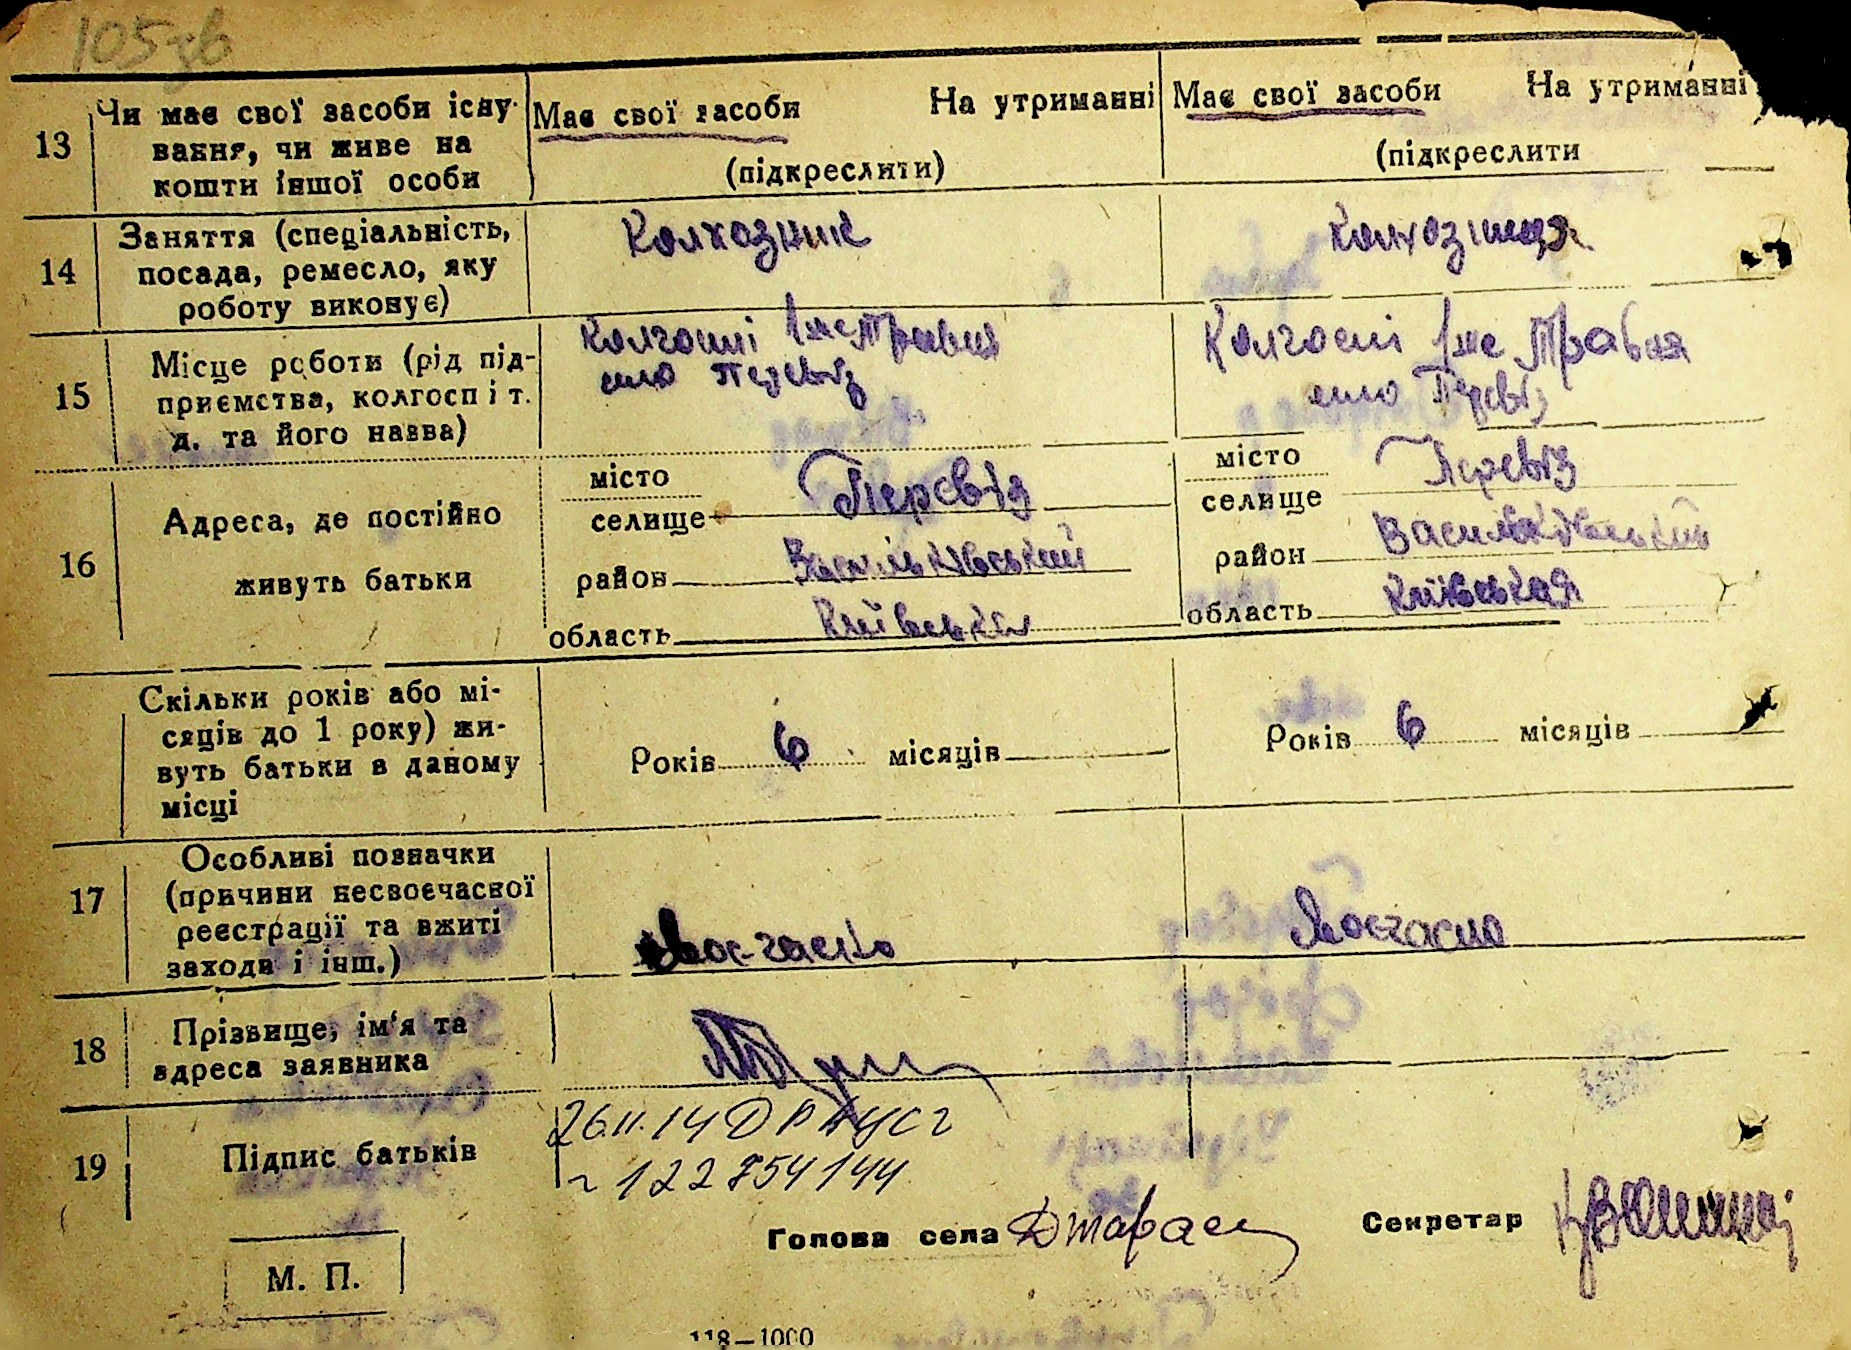 105зв
13
Чи має свої засоби існу-
вання, чи живе на
кошти іншої особи
Має свої засоби На утриманні
(підкреслити)
Має свої засоби На утриманні
(підкреслити
14
Заняття (спеціальність,
посада, ремесло, яку
роботу виконує)
Колхозник
Колхозниця
15
Місце роботи (рід під-
приємства, колгосп і т.
д. та його назва)
Колгоспі 1ше Травня
село Перевіз
Колгоспі 1ше Травня
село Перевіз
16
Адреса, де постійно
живуть батьки
місто
селище Перевіз
район Васильківський
область Київська
місто
селище Перевіз
район Васильківський
область Київская
Скільки років або мі-
сяців до 1 року) жи-
вуть батьки в даному
місці
Років 6 місяців
Років 6 місяців
17
Особливі позначки
(причини несвоєчасної
реєстрації та вжиті
заходи і інш.)
Своєчасно
Своєчасно
18
Прізвище, ім'я та
адреса заявника
19
Підпис батьків
26.11.14 ДРАЦСГ
122754144
Голова села
Секретар
М. П.
118—1000